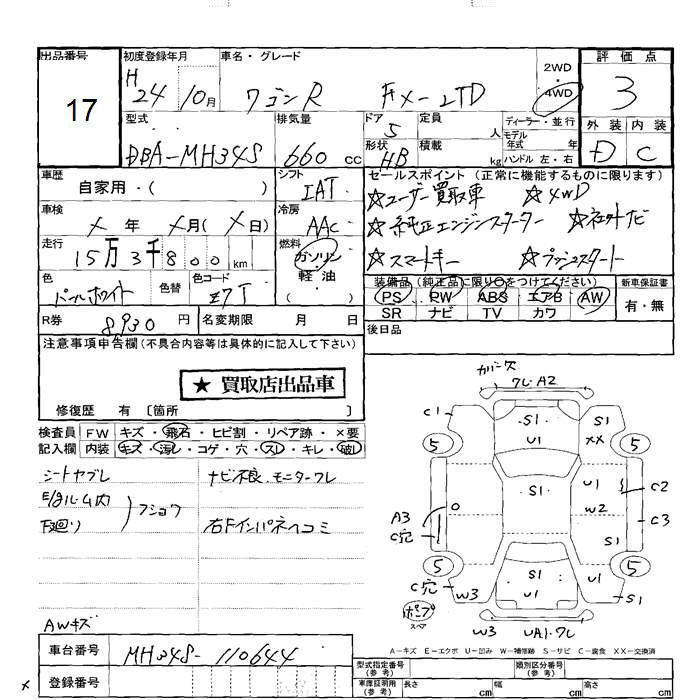 出品番号
17
初度登録年月
H
24 10月
車名・グレード
ワゴンR
FX-LTD
2WD
・
4WD
評価点
3
型式
DBA-MH34S
排気量
660 cc
ドア
5
定員
人
形状
HB
積載
kg
ディーラー・並行
モデル
年式 年
ハンドル 左・右
外装 内装
D C
車歴
自家用・( )
シフト
IAT
車検
× 年 ×月(×日)
冷房
AAC
走行
15万3千800km
燃料
ガソリン
軽油
色
パールホワイト
色替
色コード
Z7T
R券
8930 円
名変期限 月 日
セールスポイント (正常に機能するものに限ります)
☆ユーザー買取車 ☆4WD
☆純正エンジンスターター ☆社外ナビ
☆スマートキー ☆プッシュスタート
装備品(純正品に限り○をつけてください)
PS PW ABS エアB AW
SR ナビ TV カワ
新車保証書
有・無
後日品
注意事項申告欄(不具合内容等は具体的に記入して下さい)
★ 買取店出品車
修復歴 有 〔箇所 〕
検査員
記入欄
FW キズ・飛石・ヒビ割・リペア跡・×要
内装 キズ・汚レ・コゲ・穴・スレ・キレ・破レ
シートヤブレ
E/gルーム内
下廻リ
フショク
ナビ不良.モニターワレ
右Fインパネヘコミ
AWキズ
車台番号
MH34S-110644
登録番号
×
カバー欠
ワレ・A2
C1
S1
U1
S1
XX
5
5
S1
U1
C2
W2
C3
A3
C穴
S1
5
5
C穴
S1
U1
U1
W3
S1
ポンプ
スペア
W3
UA1・ワレ
A-キズ E-エクボ U-凹み W-補修跡 S-サビ C-腐食 XX-交換済
型式指定番号
(参考)
類別区分番号
(参考)
車庫証明用
(参考)
長さ cm
幅 cm
高さ cm